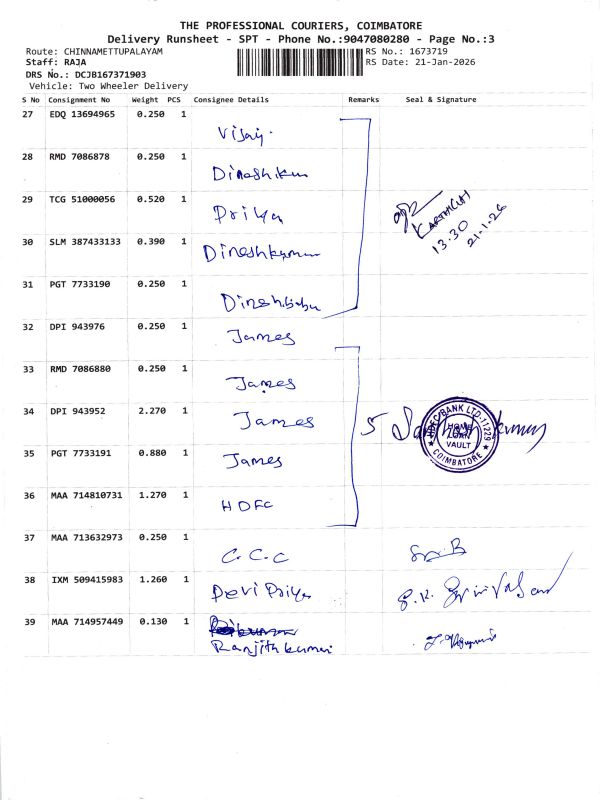 THE PROFESSIONAL COURIERS, COIMBATORE
Delivery Runsheet - SPT - Phone No.:9047080280 - Page No.:3
Route: CHINNAMETTUPALAYAM RS No.: 1673719
Staff: RAJA RS Date: 21-Jan-2026
DRS No.: DCJB167371903
Vehicle: Two Wheeler Delivery
S No Consignment No Weight PCS Consignee Details Remarks Seal & Signature
27 EDQ 13694965 0.250 1
Vijay.
28 RMD 7086878 0.250 1
Dineshkum
29 TCG 51000056 0.520 1
Priya
KARTHICK
13.30
21.1.26
30 SLM 387433133 0.390 1
Dineshkumar
31 PGT 7733190 0.250 1
Dineshbabu
32 DPI 943976 0.250 1
James
33 RMD 7086880 0.250 1
James
34 DPI 943952 2.270 1
James 5
HDFC BANK LTD-11229
HOME LOAN VAULT
COIMBATORE
35 PGT 7733191 0.880 1
James
36 MAA 714810731 1.270 1
HDFC
37 MAA 713632973 0.250 1
C.C.C
38 IXM 509415983 1.260 1
Devi Priya
39 MAA 714957449 0.130 1
Ranjithkumar